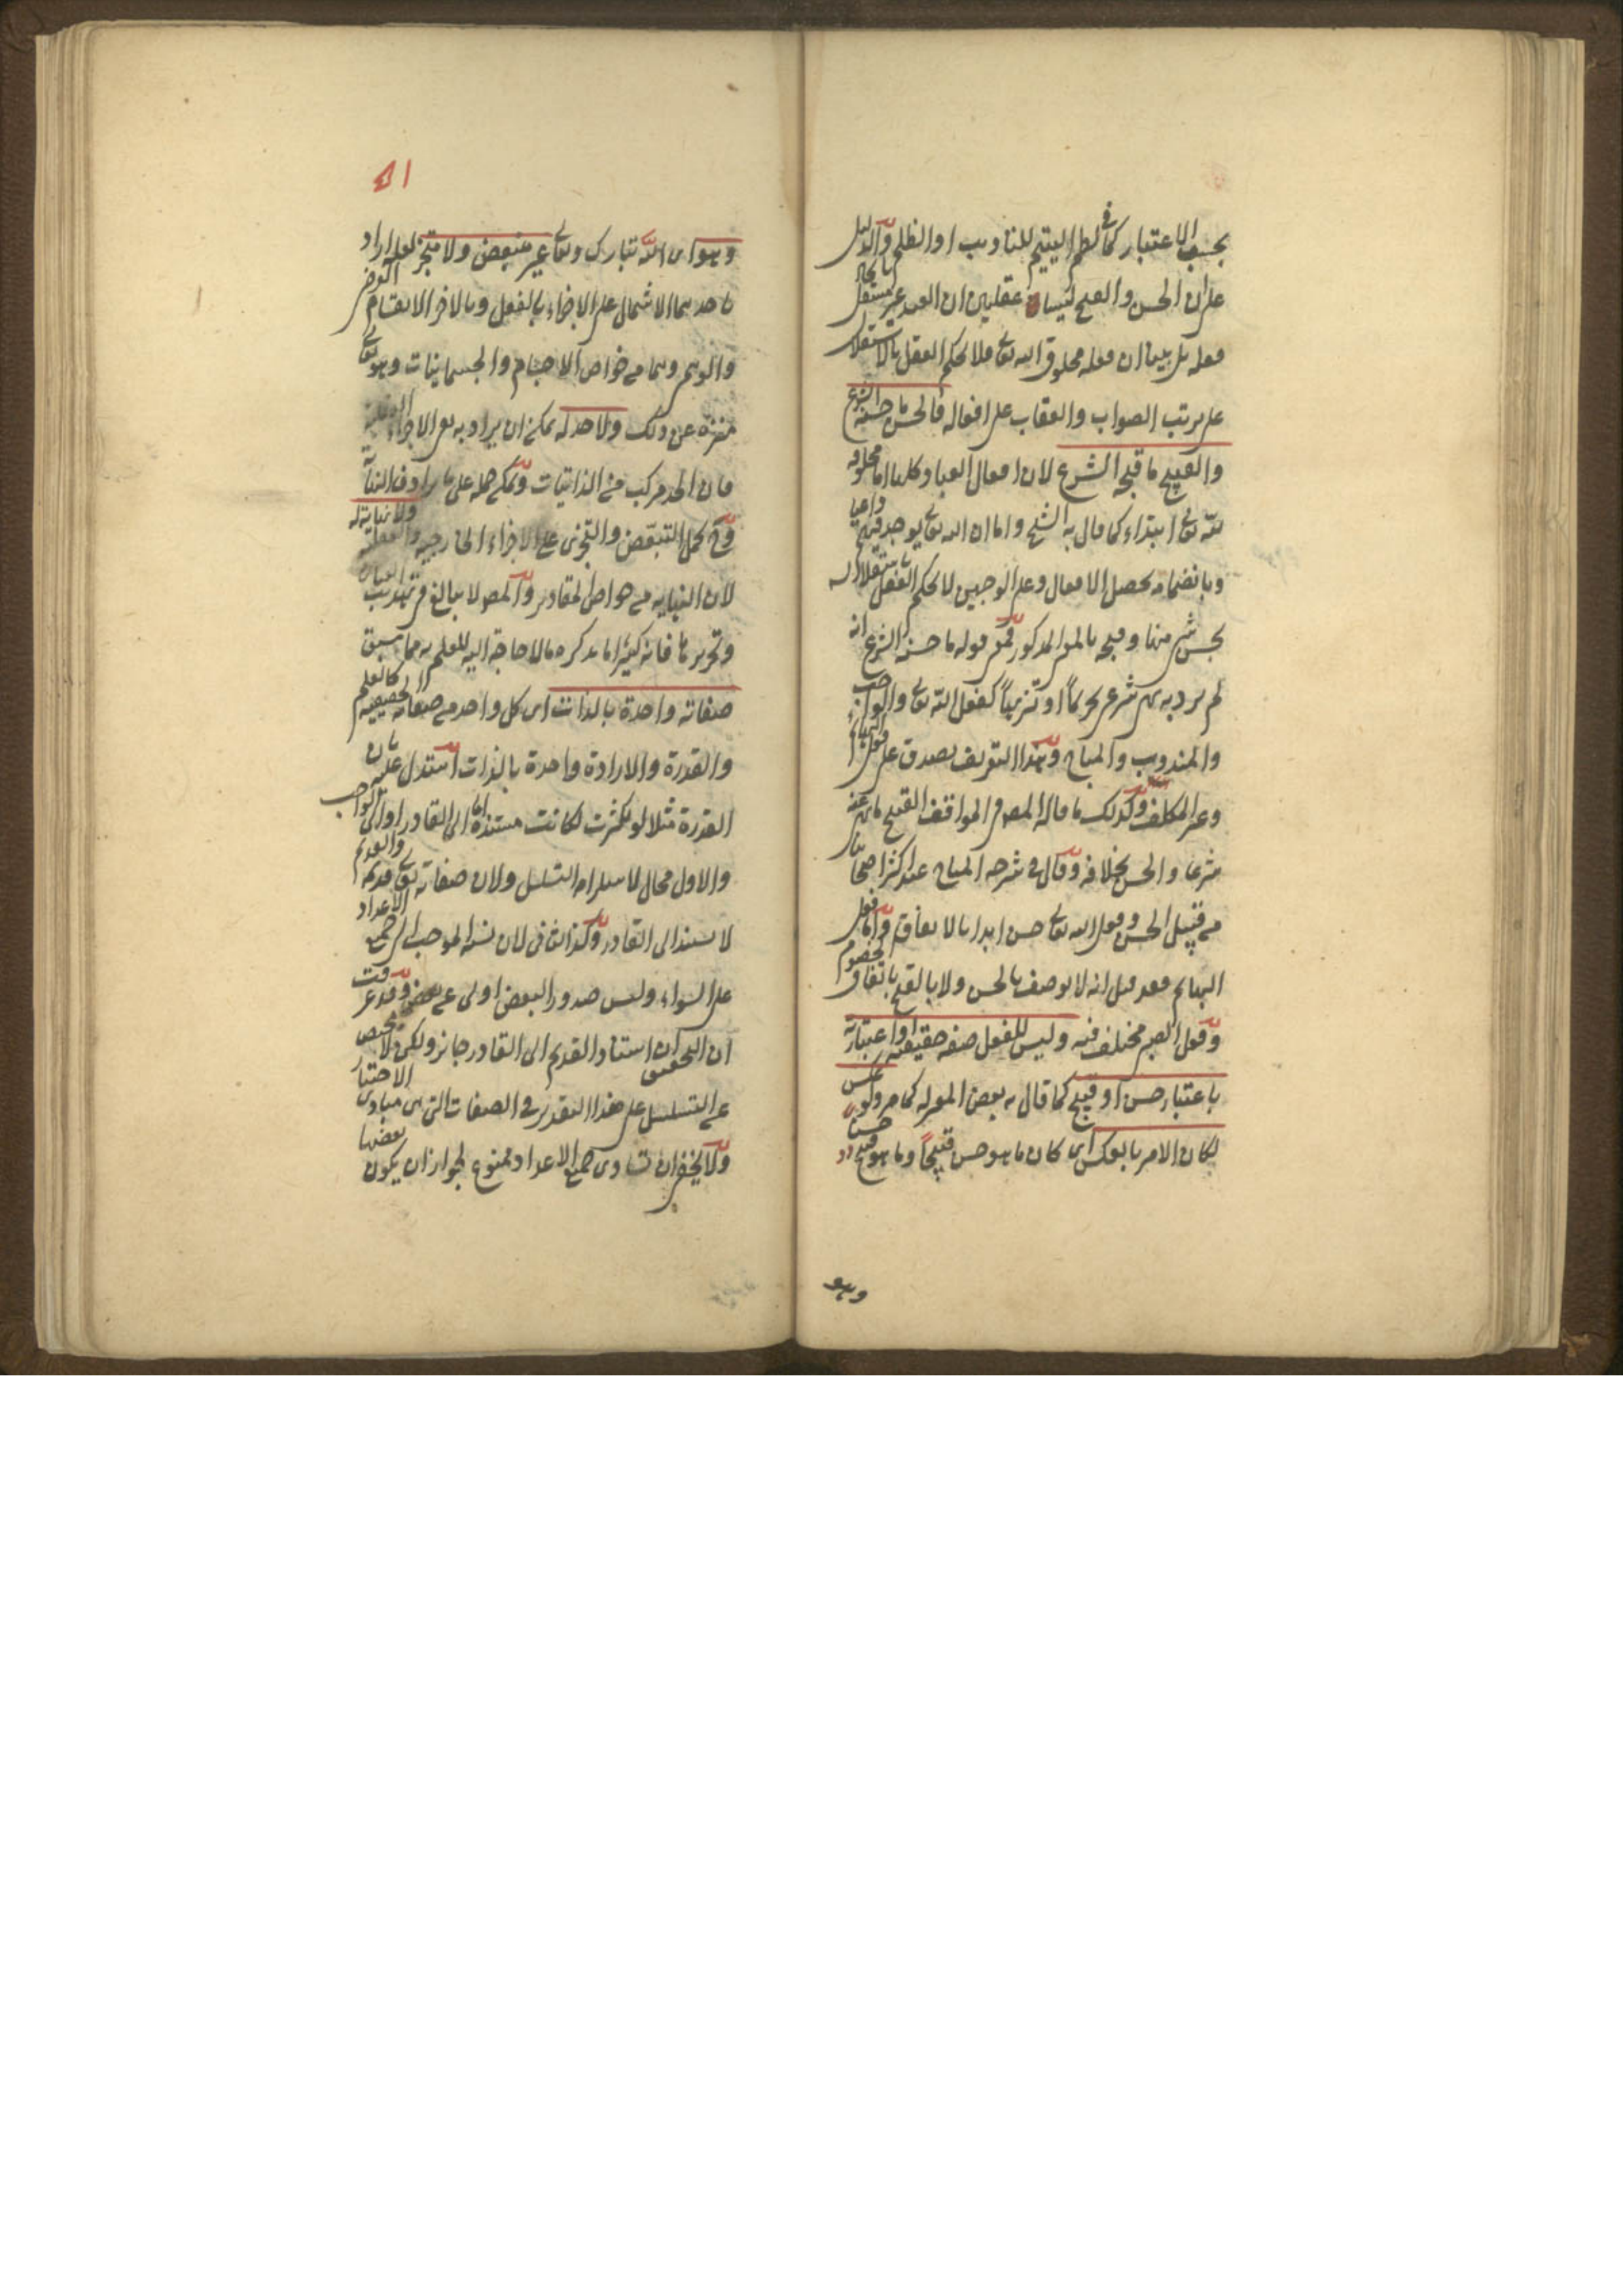 بحسب الاعتبار كما فى لطم اليتيم للتاديب او الظلم والدليل
على ان الحسن والقبح ليسا عقليين ان العبد غير مستقل بايجاد
فعله بل بينا ان فعله مخلوق الله تعالى فلا يحكم العقل بالاستقلال
على ترتب الصواب والعقاب على افعاله فالحسن ما حسنه الشرع
والقبيح ما قبحه الشرع لان افعال العباد كلها اما مخلوقة
لله تعالى ابتداء كما قال به الشيخ واما ان الله تعالى يوجد فيهم داعيا
وبانضمامه يحصل الافعال وعلى الوجهين لا يحكم العقل بالاستقلال
بحسن شئ منها وقبحه بالمعنى المذكور فمعنى قوله ما حسنه الشرع انه
لم يرد به نهى شرعى تحريما او تنزيها كفعل الله تعالى والواجب
والمندوب والمباح وهذا التعريف يصدق على فعل البهائم
وغير المكلف وكذلك ما قال المص فى المواقف القبيح ما نهى عنه
شرعا والحسن بخلافه وقال فى شرحه المباح عند اكثر اصحابنا
من قبيل الحسن وفعل الله تعالى حسن ابدا بالاتفاق واما فعل
البهائم فقد قيل انه لا يوصف بالحسن ولا بالقبح باتفاق الخصوم
وفعل الصبى مختلف فيه وليس للفعل صفة حقيقية او اعتبارية
باعتبارها حسن او قبيح كما قال به بعض المعتزلة كما مر ولو عكس
لكان الامر بالعكس اى كان ما هو حسن قبيحا وما هو قبيح حسنا
وهو
٥١
وهو اى الله تبارك وتعالى غير متبعض ولا متجز لعله اراد
باحدهما الاشتمال على الاجزاء بالفعل وبالاخر الانقسام الفرضى
والوهمى وهما من خواص الاجسام والجسمانيات وهو تعالى
منزه عن ذلك ولا حد له يمكن ان يراد به نفى الاجزاء العقلية
فان الحد مركب من الذاتيات ويمكن حمله على ما يرادف النهاية
وح يحمل التبعض والتجزى على الاجزاء الخارجية والعقلية ولا نهاية له
لان النهاية من خواص المقادير والمص لا يبالغ فى تهذيب العبارة
وتحريرها فانه كثيرا ما يذكره ما لا حاجة اليه للعلم به مما سبق
صفاته واحدة بالذات اى كل واحد من صفاته الحقيقية كالعلم
والقدرة والارادة واحدة بالذات استدل عليه بان
القدرة مثلا لو تكثرت لكانت مستندة اما الى القادر او الى الواجب
والاول محال لاستلزامه التسلسل ولان صفاته تعالى قديمة والقديم
لا يستند الى القادر وكذا الثانى لان نسبة الموجب الى جميع الاعداد
على السواء وليس صدور البعض اولى من بعض وقد عرفت
ان التحقيق ان استناد القديم الى القادر جائز ولكن لا محيص
عن التسلسل على هذا التقدير فى الصفات التى هى مبادى الاختيار
ولا يخفى ان تساوى جميع الاعداد ممنوع لجواز ان يكون بعضها